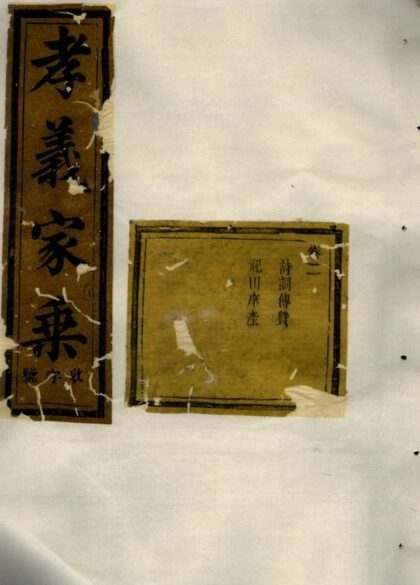 孝義家乘
字號
卷二
詩詞傳贊
祀田房產